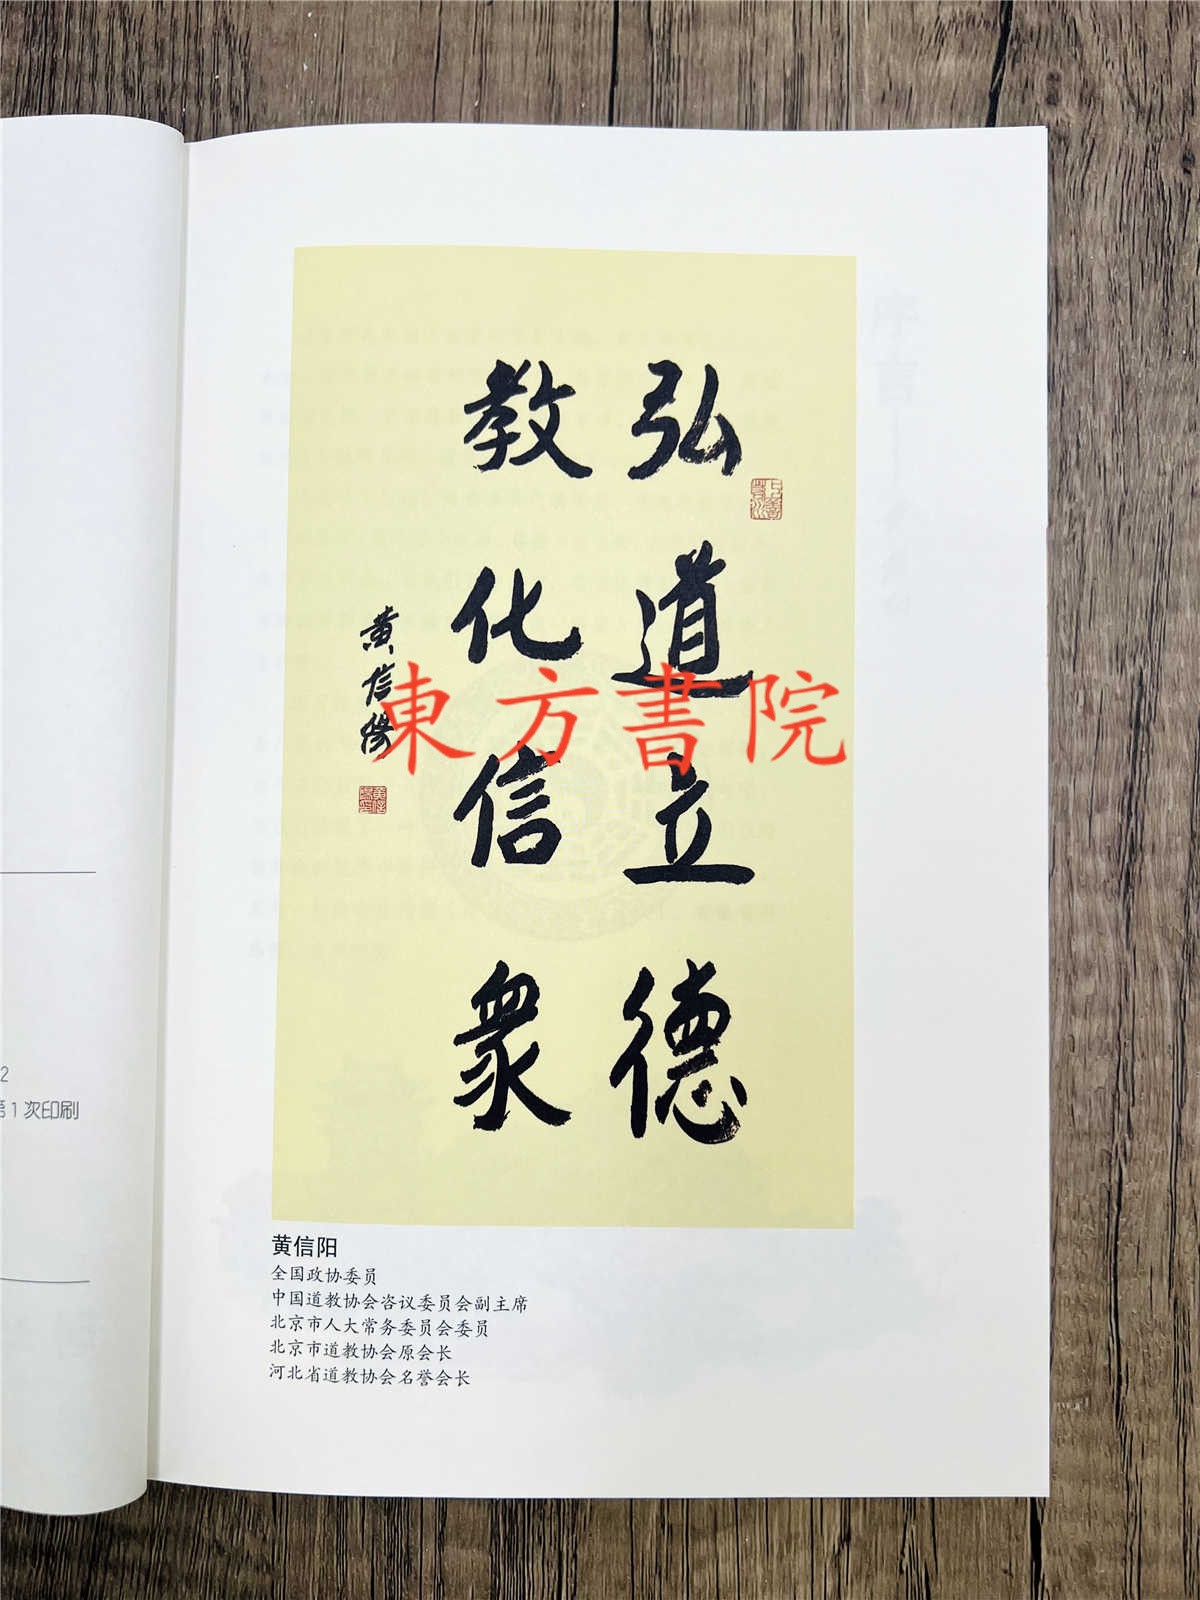 弘道立德
教化信衆
黄信陽
東方書院
黄信阳
全国政协委员
中国道教协会咨议委员会副主席
北京市人大常务委员会委员
北京市道教协会原会长
河北省道教协会名誉会长
2
第1次印刷